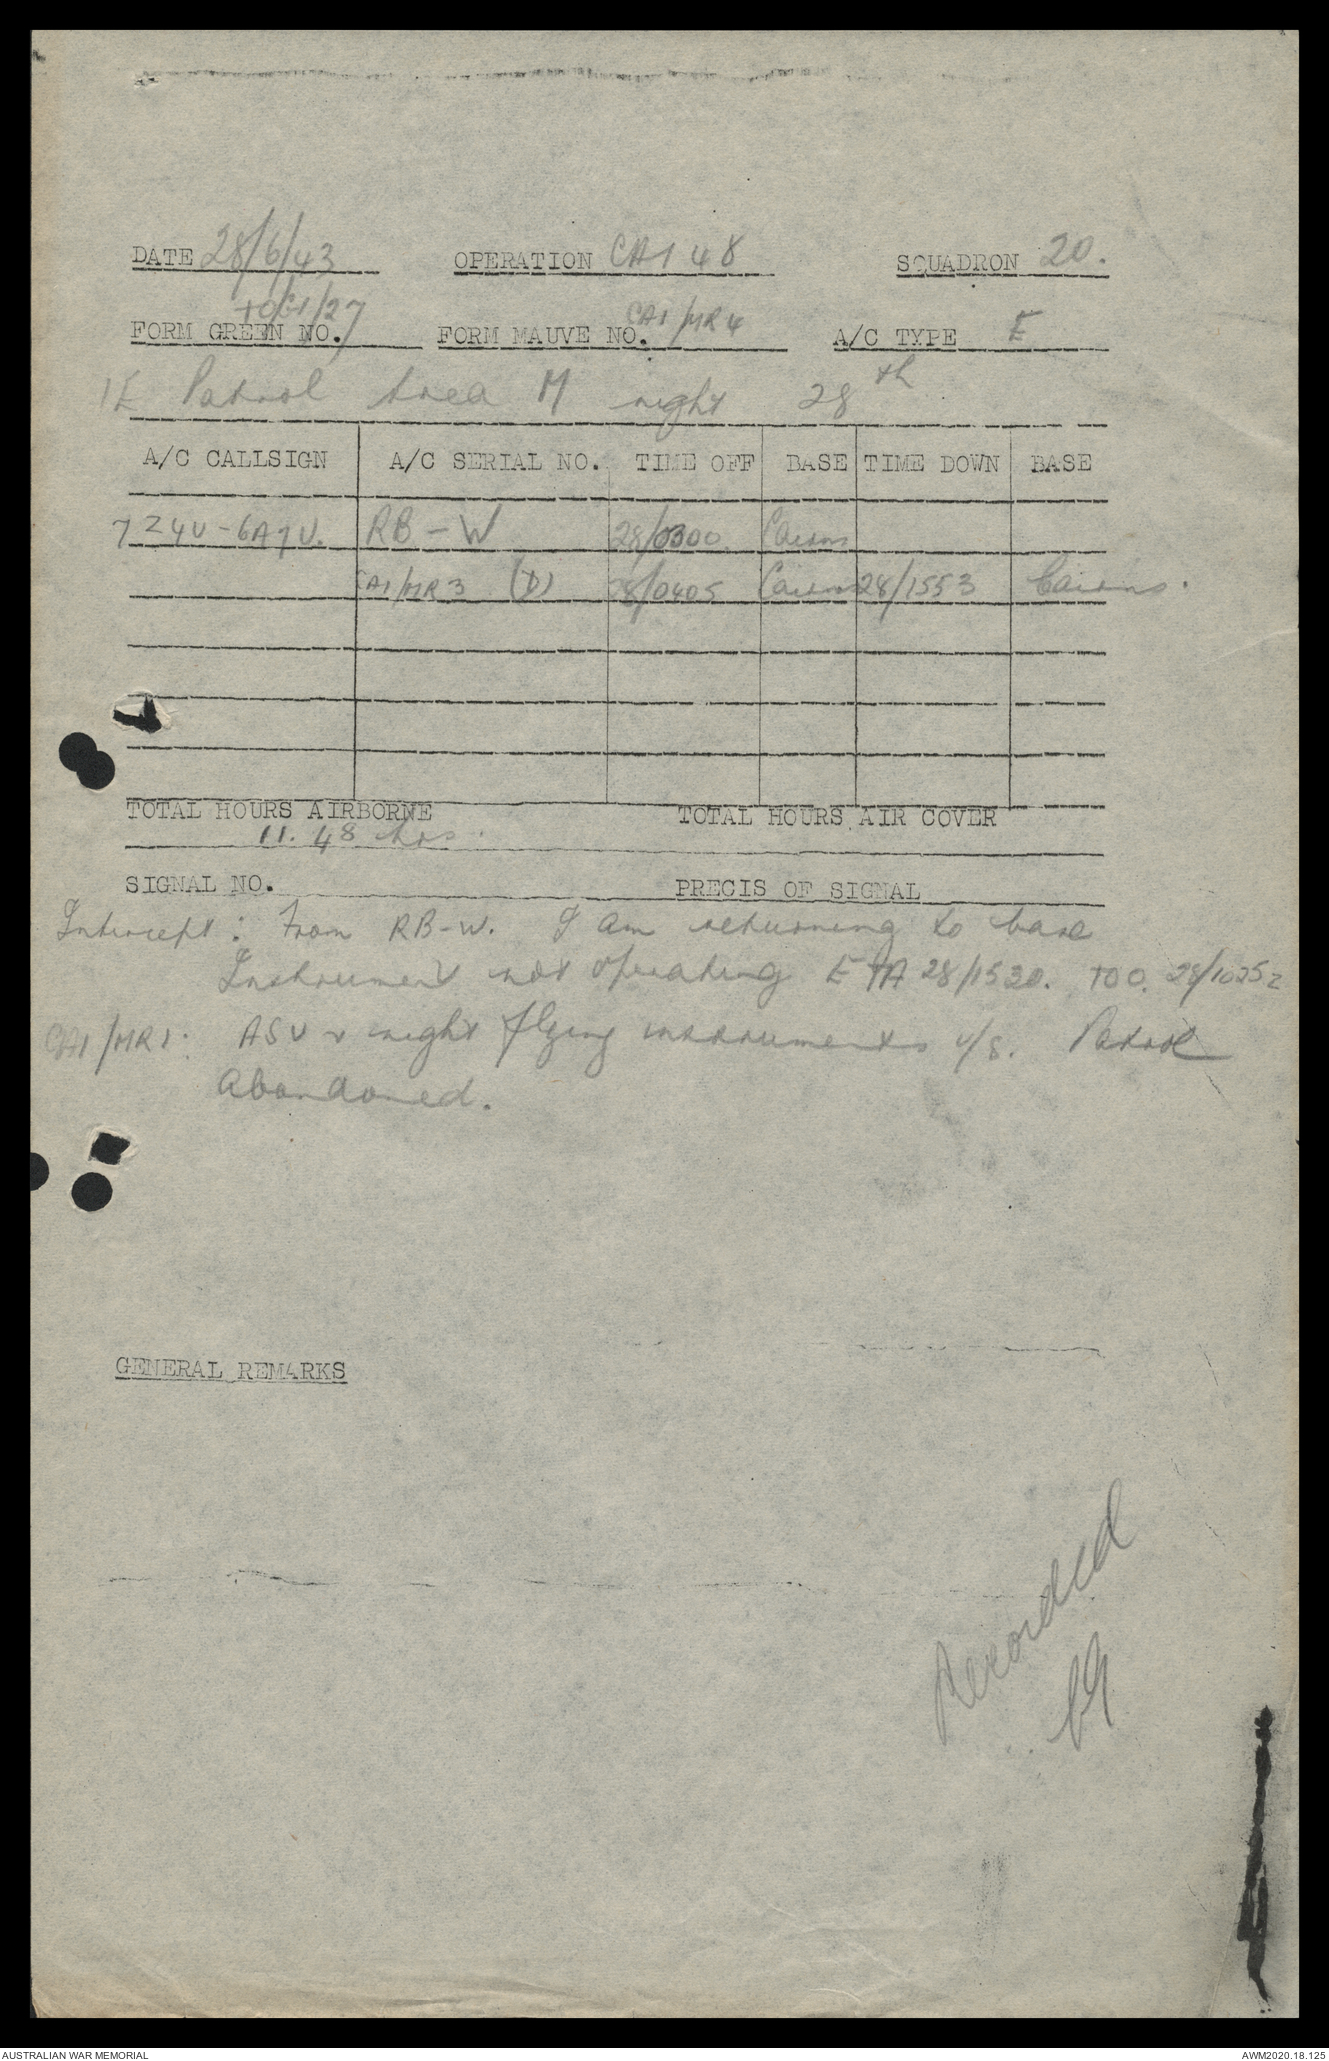 DATE 28/6/43 OPERATION CA1 48 SQUADRON 20.
FORM GREEN NO. FORM MAUVE NO. CA1/MR4 A/C TYPE E
1E Patrol Area M night 28th
A/C CALLSIGN A/C SERIAL NO. TIME OFF BASE TIME DOWN BASE
7Z4V-6A7V. RB-W 28/0300 Cairns
CA1/MR3 (D) 28/0405 Cairns 28/1553 Cairns.
TOTAL HOURS AIRBORNE TOTAL HOURS AIR COVER
11.48 hrs.
SIGNAL NO. PRECIS OF SIGNAL
Intercept: From RB-W. I am returning to base
Instrument not operating ETA 28/1530. TOO. 28/1025Z
CA1/MR1: ASV & night flying instruments u/s. Patrol
Abandoned.
GENERAL REMARKS
Recorded
AUSTRALIAN WAR MEMORIAL AWM2020.18.125